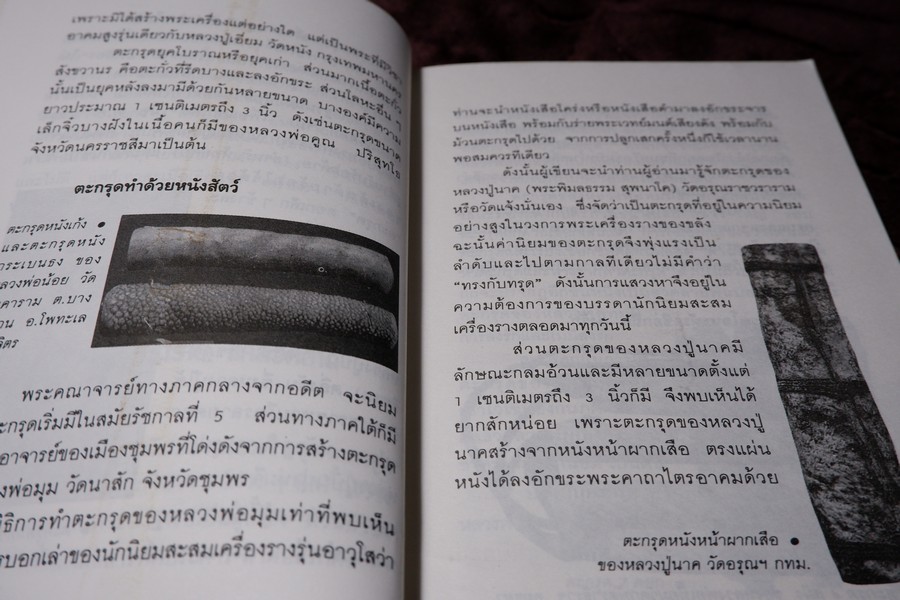 เพราะมิได้สร้างพระเครื่องแต่อย่างใด แต่เป็นพระที่มีวิชา
อาคมสูงรุ่นเดียวกับหลวงปู่เอี่ยม วัดหนัง กรุงเทพมหานคร
ตะกรุดยุคโบราณหรือยุคเก่า ส่วนมากเนื้อตะกั่ว
สังขวานร คือตะกั่วที่รีดบางและลงอักขระ ส่วนโลหะอื่น ๆ
นั้นเป็นยุคหลังลงมามีด้วยกันหลายขนาด บางองค์มีความ
ยาวประมาณ 1 เซนติเมตรถึง 3 นิ้ว ดั่งเช่นตะกรุดขนาด
เล็กจิ๋วบางฝังในเนื้อคนก็มีของหลวงพ่อคูณ ปริสุทโธ
จังหวัดนครราชสีมาเป็นต้น
ตะกรุดทำด้วยหนังสัตว์
ตะกรุดหนังเก้ง ●
และตะกรุดหนัง
กระเบนธง ของ
ลวงพ่อน้อย วัด
คาราม ต.บาง
อ.โพทะเล
จิตร
พระคณาจารย์ทางภาคกลางจากอดีต จะนิยม
ะกรุดเริ่มมีในสมัยรัชกาลที่ 5 ส่วนทางภาคใต้ก็มี
อาจารย์ของเมืองชุมพรที่โด่งดังจากการสร้างตะกรุด
งพ่อมุม วัดนาสัก จังหวัดชุมพร
ธิการทำตะกรุดของหลวงพ่อมุมเท่าที่พบเห็น
รบอกเล่าของนักนิยมสะสมเครื่องรางรุ่นอาวุโสว่า
ท่านจะนำหนังเสือโคร่งหรือหนังเสือดำมาลงอักขระจาร
บนหนังเสือ พร้อมกับร่ายพระเวทย์มนต์เสียงดัง พร้อมกับ
ม้วนตะกรุดไปด้วย จากการปลุกเสกครั้งหนึ่งก็ใช้เวลานาน
พอสมควรทีเดียว
ดังนั้นผู้เขียนจะนำท่านผู้อ่านมารู้จักตะกรุดของ
หลวงปู่นาค (พระพิมลธรรม สุพนาโค) วัดอรุณราชวราราม
หรือวัดแจ้งนั่นเอง ซึ่งจัดว่าเป็นตะกรุดที่อยู่ในความนิยม
อย่างสูงในวงการพระเครื่องรางของขลัง
ฉะนั้นค่านิยมของตะกรุดจึงพุ่งแรงเป็น
ลำดับและไปตามกาลทีเดียวไม่มีคำว่า
“ทรงกับทรุด” ดังนั้นการแสวงหาจึงอยู่ใน
ความต้องการของบรรดานักนิยมสะสม
เครื่องรางตลอดมาทุกวันนี้
ส่วนตะกรุดของหลวงปู่นาคมี
ลักษณะกลมอ้วนและมีหลายขนาดตั้งแต่
1 เซนติเมตรถึง 3 นิ้วก็มี จึงพบเห็นได้
ยากสักหน่อย เพราะตะกรุดของหลวงปู่
นาคสร้างจากหนังหน้าผากเสือ ตรงแผ่น
หนังได้ลงอักขระพระคาถาไตรอาคมด้วย
ตะกรุดหนังหน้าผากเสือ ●
ของหลวงปู่นาค วัดอรุณฯ กทม.